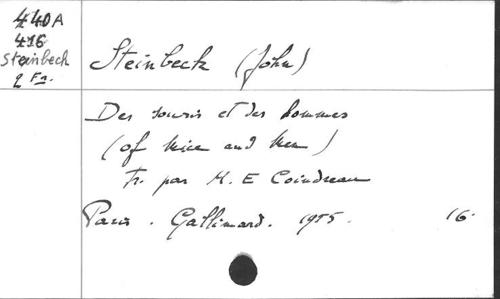 440A
416
Steinbeck
2 Fr.
Steinbeck (John)
Des souris et des hommes
(of Mice and Men)
Tr. par M. E Coindreau
Paris. Gallimard. 1955. 16